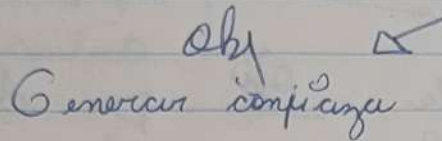 Obj
Generar confianza